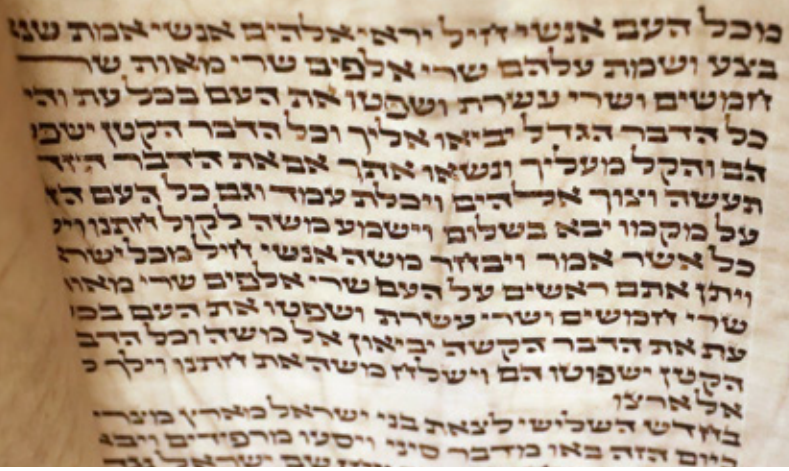 מכל העם אנשי חיל יראי אלהים אנשי אמת
בצע ושמת עלהם שרי אלפים שרי מאות שר
חמשים ושרי עשרת ושפטו את העם בכל עת והי
כל הדבר הגדל יביאו אליך וכל הדבר הקטן ישפט
הם והקל מעליך ונשאו אתך אם את הדבר הזה
תעשה וצוך אלהים ויכלת עמד וגם כל העם הז
על מקמו יבא בשלום וישמע משה לקול חתנו ויע
כל אשר אמר ויבחר משה אנשי חיל מכל ישרא
ויתן אתם ראשים על העם שרי אלפים שרי מאות
שרי חמשים ושרי עשרת ושפטו את העם בכל
עת את הדבר הקשה יביאון אל משה וכל הדב
הקטן ישפוטו הם וישלח משה את חתנו וילך ל
אל ארצו
בחדש השלישי לצאת בני ישראל מארץ מצרי
ביום הזה באו מדבר סיני ויסעו מרפידים ויבא
שם ישראל נגד